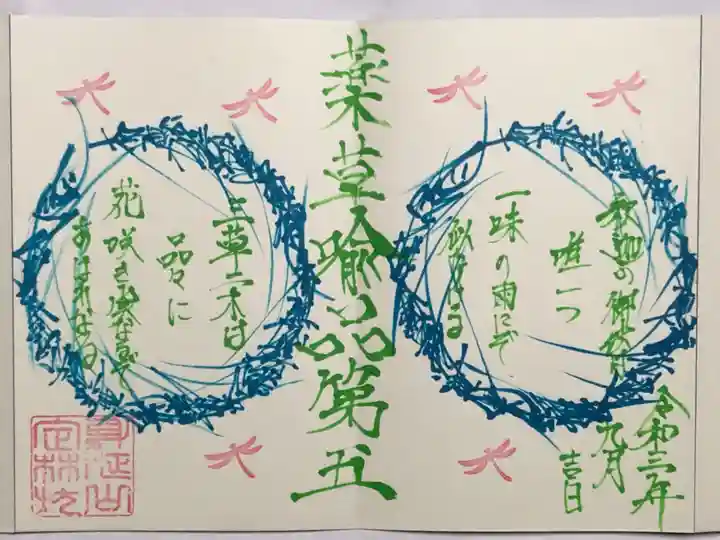 釈迦の御法は
唯一つ
一味の雨にぞ
似たりける
薬草喩品第五
三草二木は
品々に
花咲き実なるぞ
あはれなる
令和三年
九月
吉日
身延山
定林坊